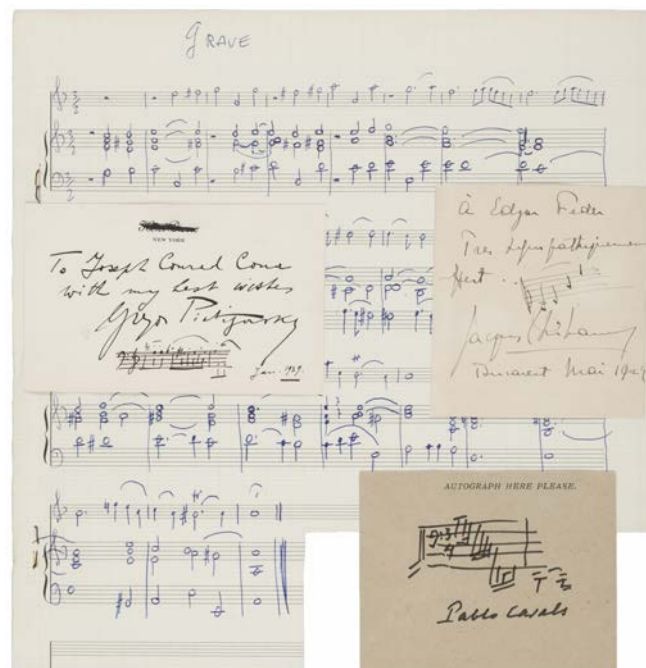 GRAVE
NEW YORK
To Joseph Conrad Cona
with my best wishes
Jan. 1939.
à Edgar Feder
Très sympathiquement
Jacques Thibaud
Bucarest Mai
AUTOGRAPH HERE PLEASE.
Pablo Casals